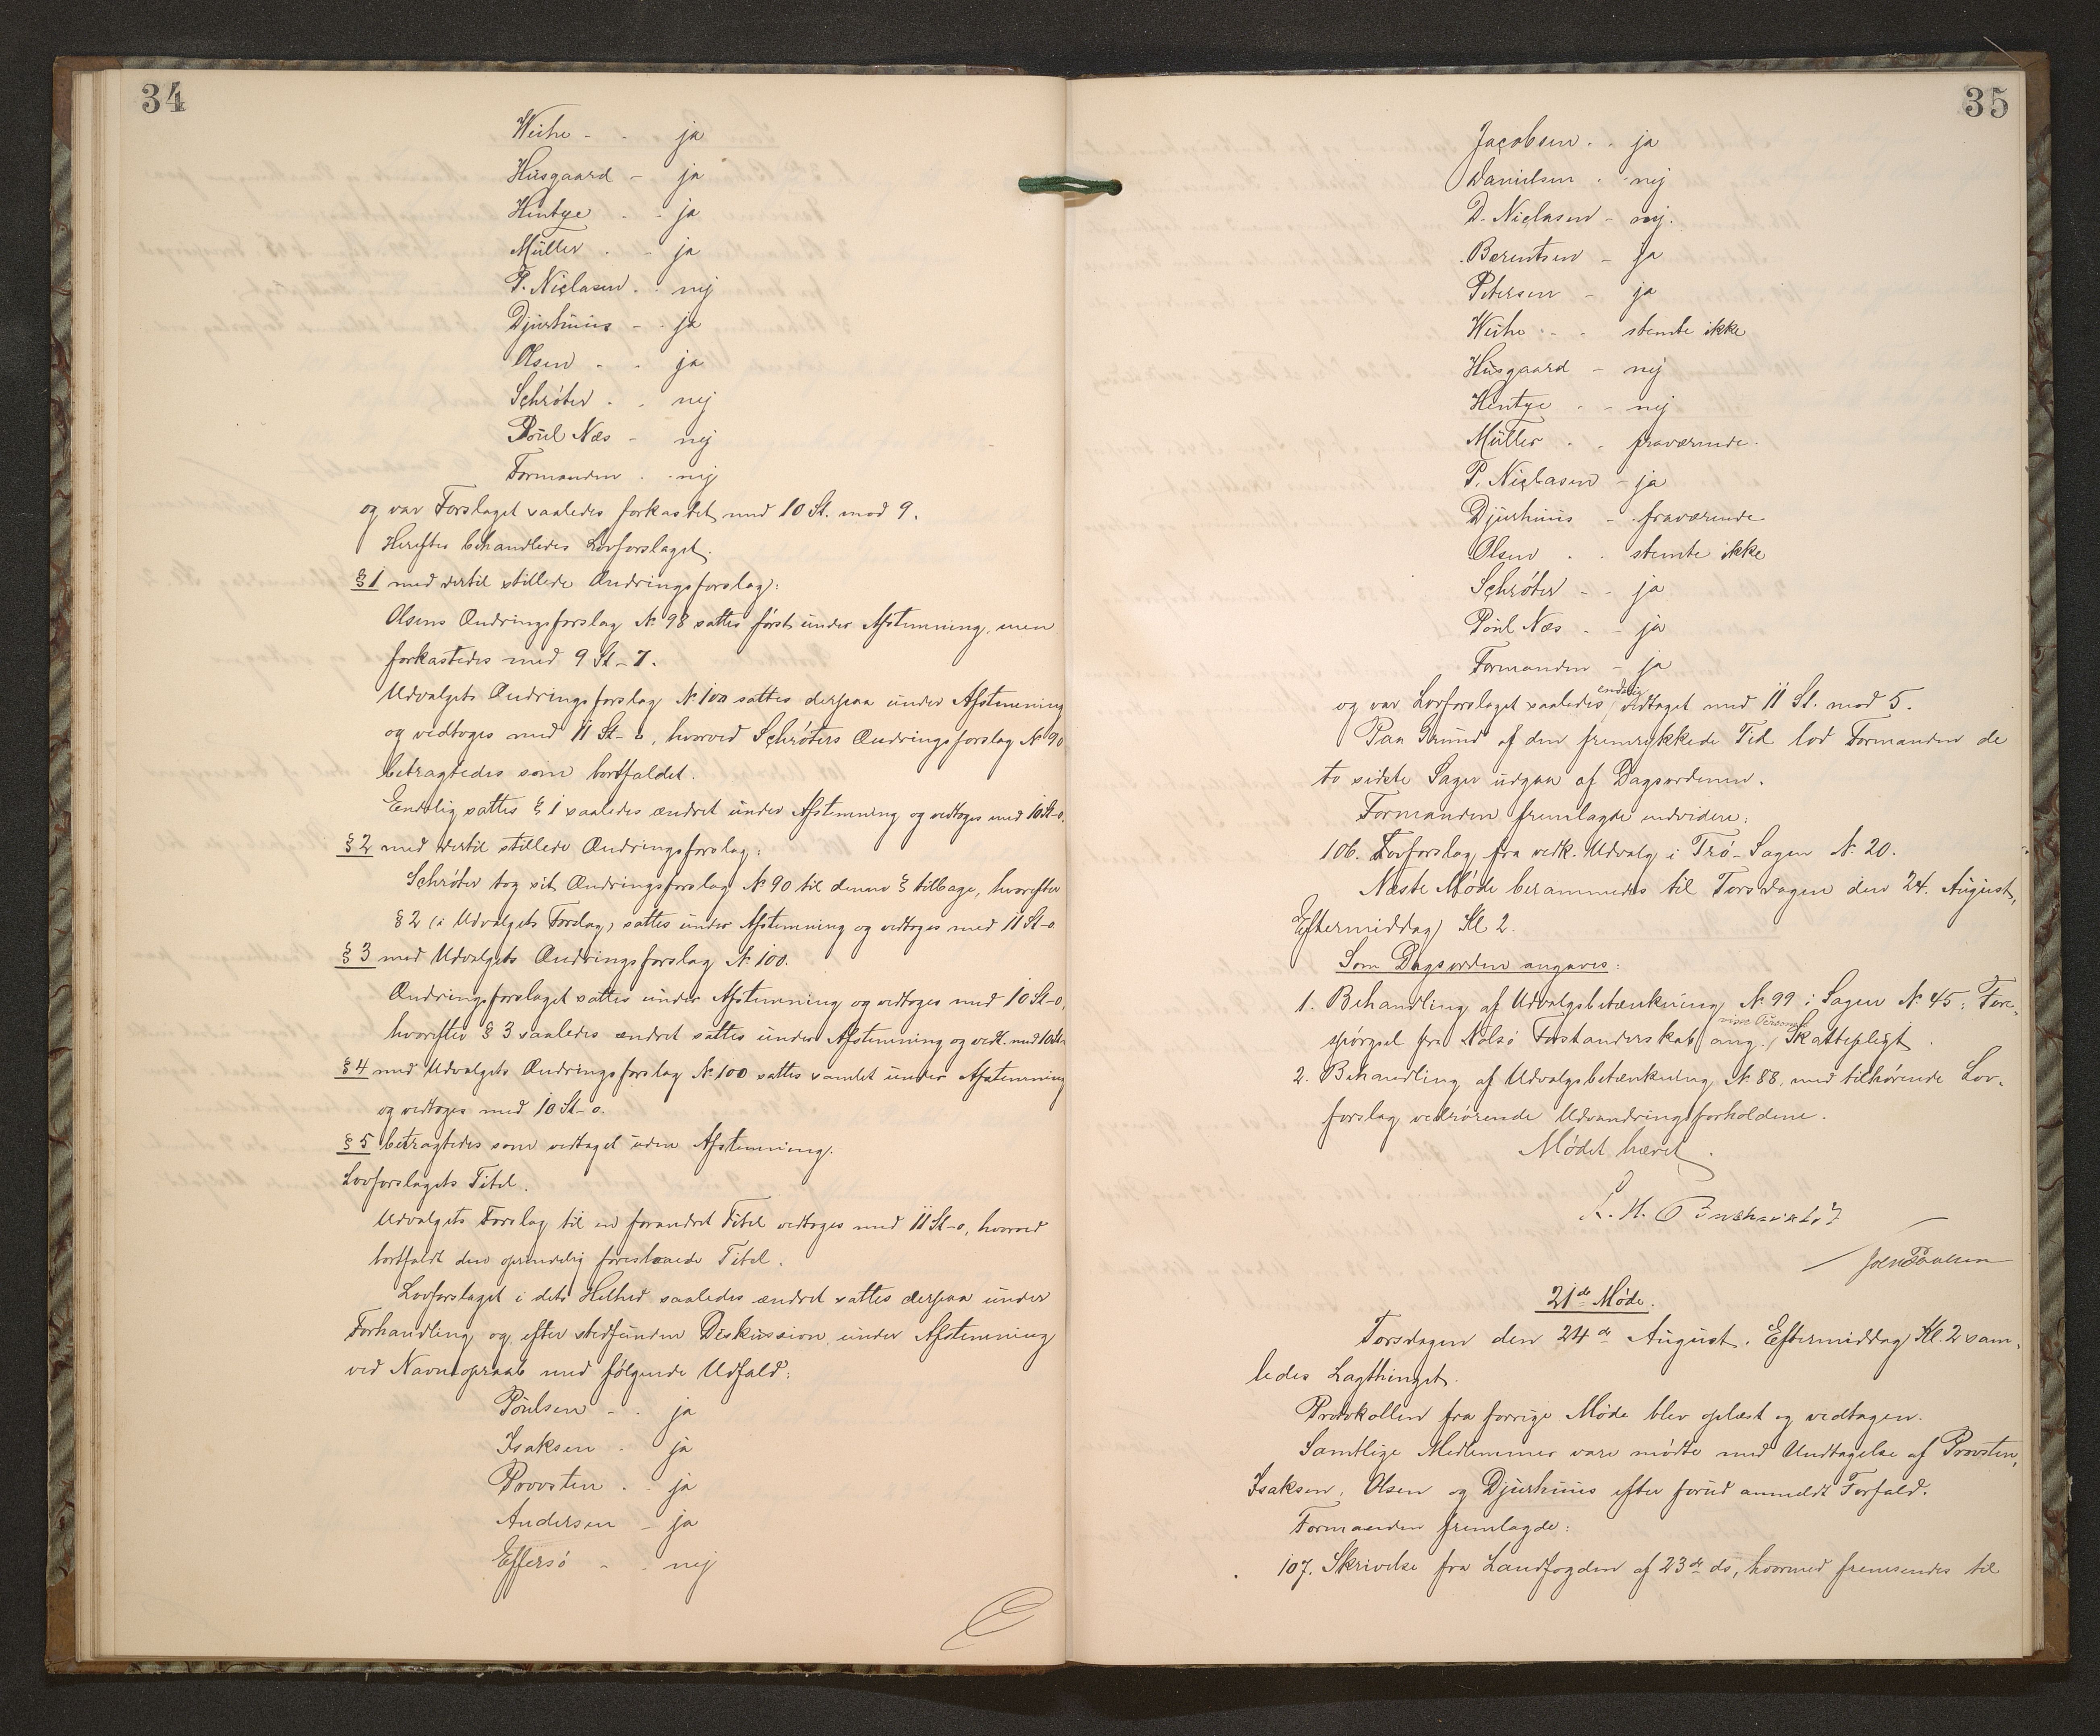 34
Weihe - - ja
Husgaard - ja
Hentze - - ja
Müller - - ja
P. Niclasen - - nej
Djurhuus - - ja
Olsen - - ja
Schrøter - - nej
Poul Næs - nej
Formanden - - nej
og var Forslaget saaledes forkastet med 10 St. mod 9.
Herefter behandledes Lovforslaget.
§ 1 med dertil stillede Ændringsforslag:
Olsens Ændringsforslag № 98 sattes først under Afstemning, men
forkastedes med 9 St - 7.
Udvalgets Ændringsforslag № 100 sattes derpaa under Afstemning
og vedtoges med 11 St - 0, hvorved Schrøters Ændringsforslag № 90
betragtedes som bortfaldet.
Endelig sattes § 1 saaledes ændret under Afstemning og vedtoges med 10 St-0.
§ 2 med dertil stillede Ændringsforslag:
Schrøter tog sit Ændringsforslag № 90 til denne § tilbage, hvorefter
§ 2 (i Udvalgets Forslag) sattes under Afstemning og vedtoges med 11 St-0
§ 3 med Udvalgets Ændringsforslag № 100.
Ændringsforslaget sattes under Afstemning og vedtoges med 10 St-0,
hvorefter § 3 saaledes ændret sattes under Afstemning og vedt. med 10 St-0
§ 4 med Udvalgets Ændringsforslag № 100 sattes samlet under Afstemning
og vedtoges med 10 St-0.
§ 5 betragtedes som vedtaget uden Afstemning.
Lovforslagets Titel.
Udvalgets Forslag til en forandret Titel vedtoges med 11 St-0, hvorved
bortfaldt den oprindelig foreslaaede Titel.
Lovforslaget i dets Helhed saaledes ændret sattes derpaa under
Forhandling og, efter stedfunden Diskussion, under Afstemning
ved Navneopraab med følgende Udfald:
Poulsen - - ja
Isaksen - ja
Provsten - - ja
Andersen - ja
Effersø - - nej
35
Jacobsen - - ja
Danielsen - - nej
D. Niclasen - nej.
Berentsen - ja
Petersen - ja
Weihe - - stemte ikke
Husgaard - nej
Hentze - - nej
Müller - - fraværende.
P. Niclasen - ja
Djurhuus - - fraværende
Olsen - - stemte ikke
Schrøter - - ja
Poul Næs - - ja
Formanden - ja
og var Lovforslaget saaledes endelig vedtaget med 11 St. mod 5.
Paa Grund af den fremrykkede Tid lod Formanden de
to sidste Sager udgaa af Dagsordenen.
Formanden fremlagde endvidere:
106. Lovforslag fra vedk. Udvalg i Trø-Sagen № 20.
Næste Møde berammedes til Torsdagen den 24. August,
Eftermiddag Kl 2.
Som Dagsorden angaves:
1. Behandling af Udvalgsbetænkning № 99 i Sagen № 45: Fore-
spørgsel fra Nolsø Forstanderskab ang. visse Personers Skattepligt.
2. Behandling af Udvalgsbetænkning № 88, med tilhørende Lov-
forslag vedrørende Udvandringsforholdene.
Mødet hævet.
21de Møde.
Torsdagen den 24de August, Eftermiddag Kl. 2 sam-
ledes Lagthinget.
Protokollen fra forrige Møde blev oplæst og vedtagen.
Samtlige Medlemmer vare mødte med Undtagelse af Provsten,
Isaksen, Olsen og Djurhuus efter forud anmeldt Forfald.
Formanden fremlagde:
107. Skrivelse fra Landfogden af 23de ds, hvormed fremsendes til